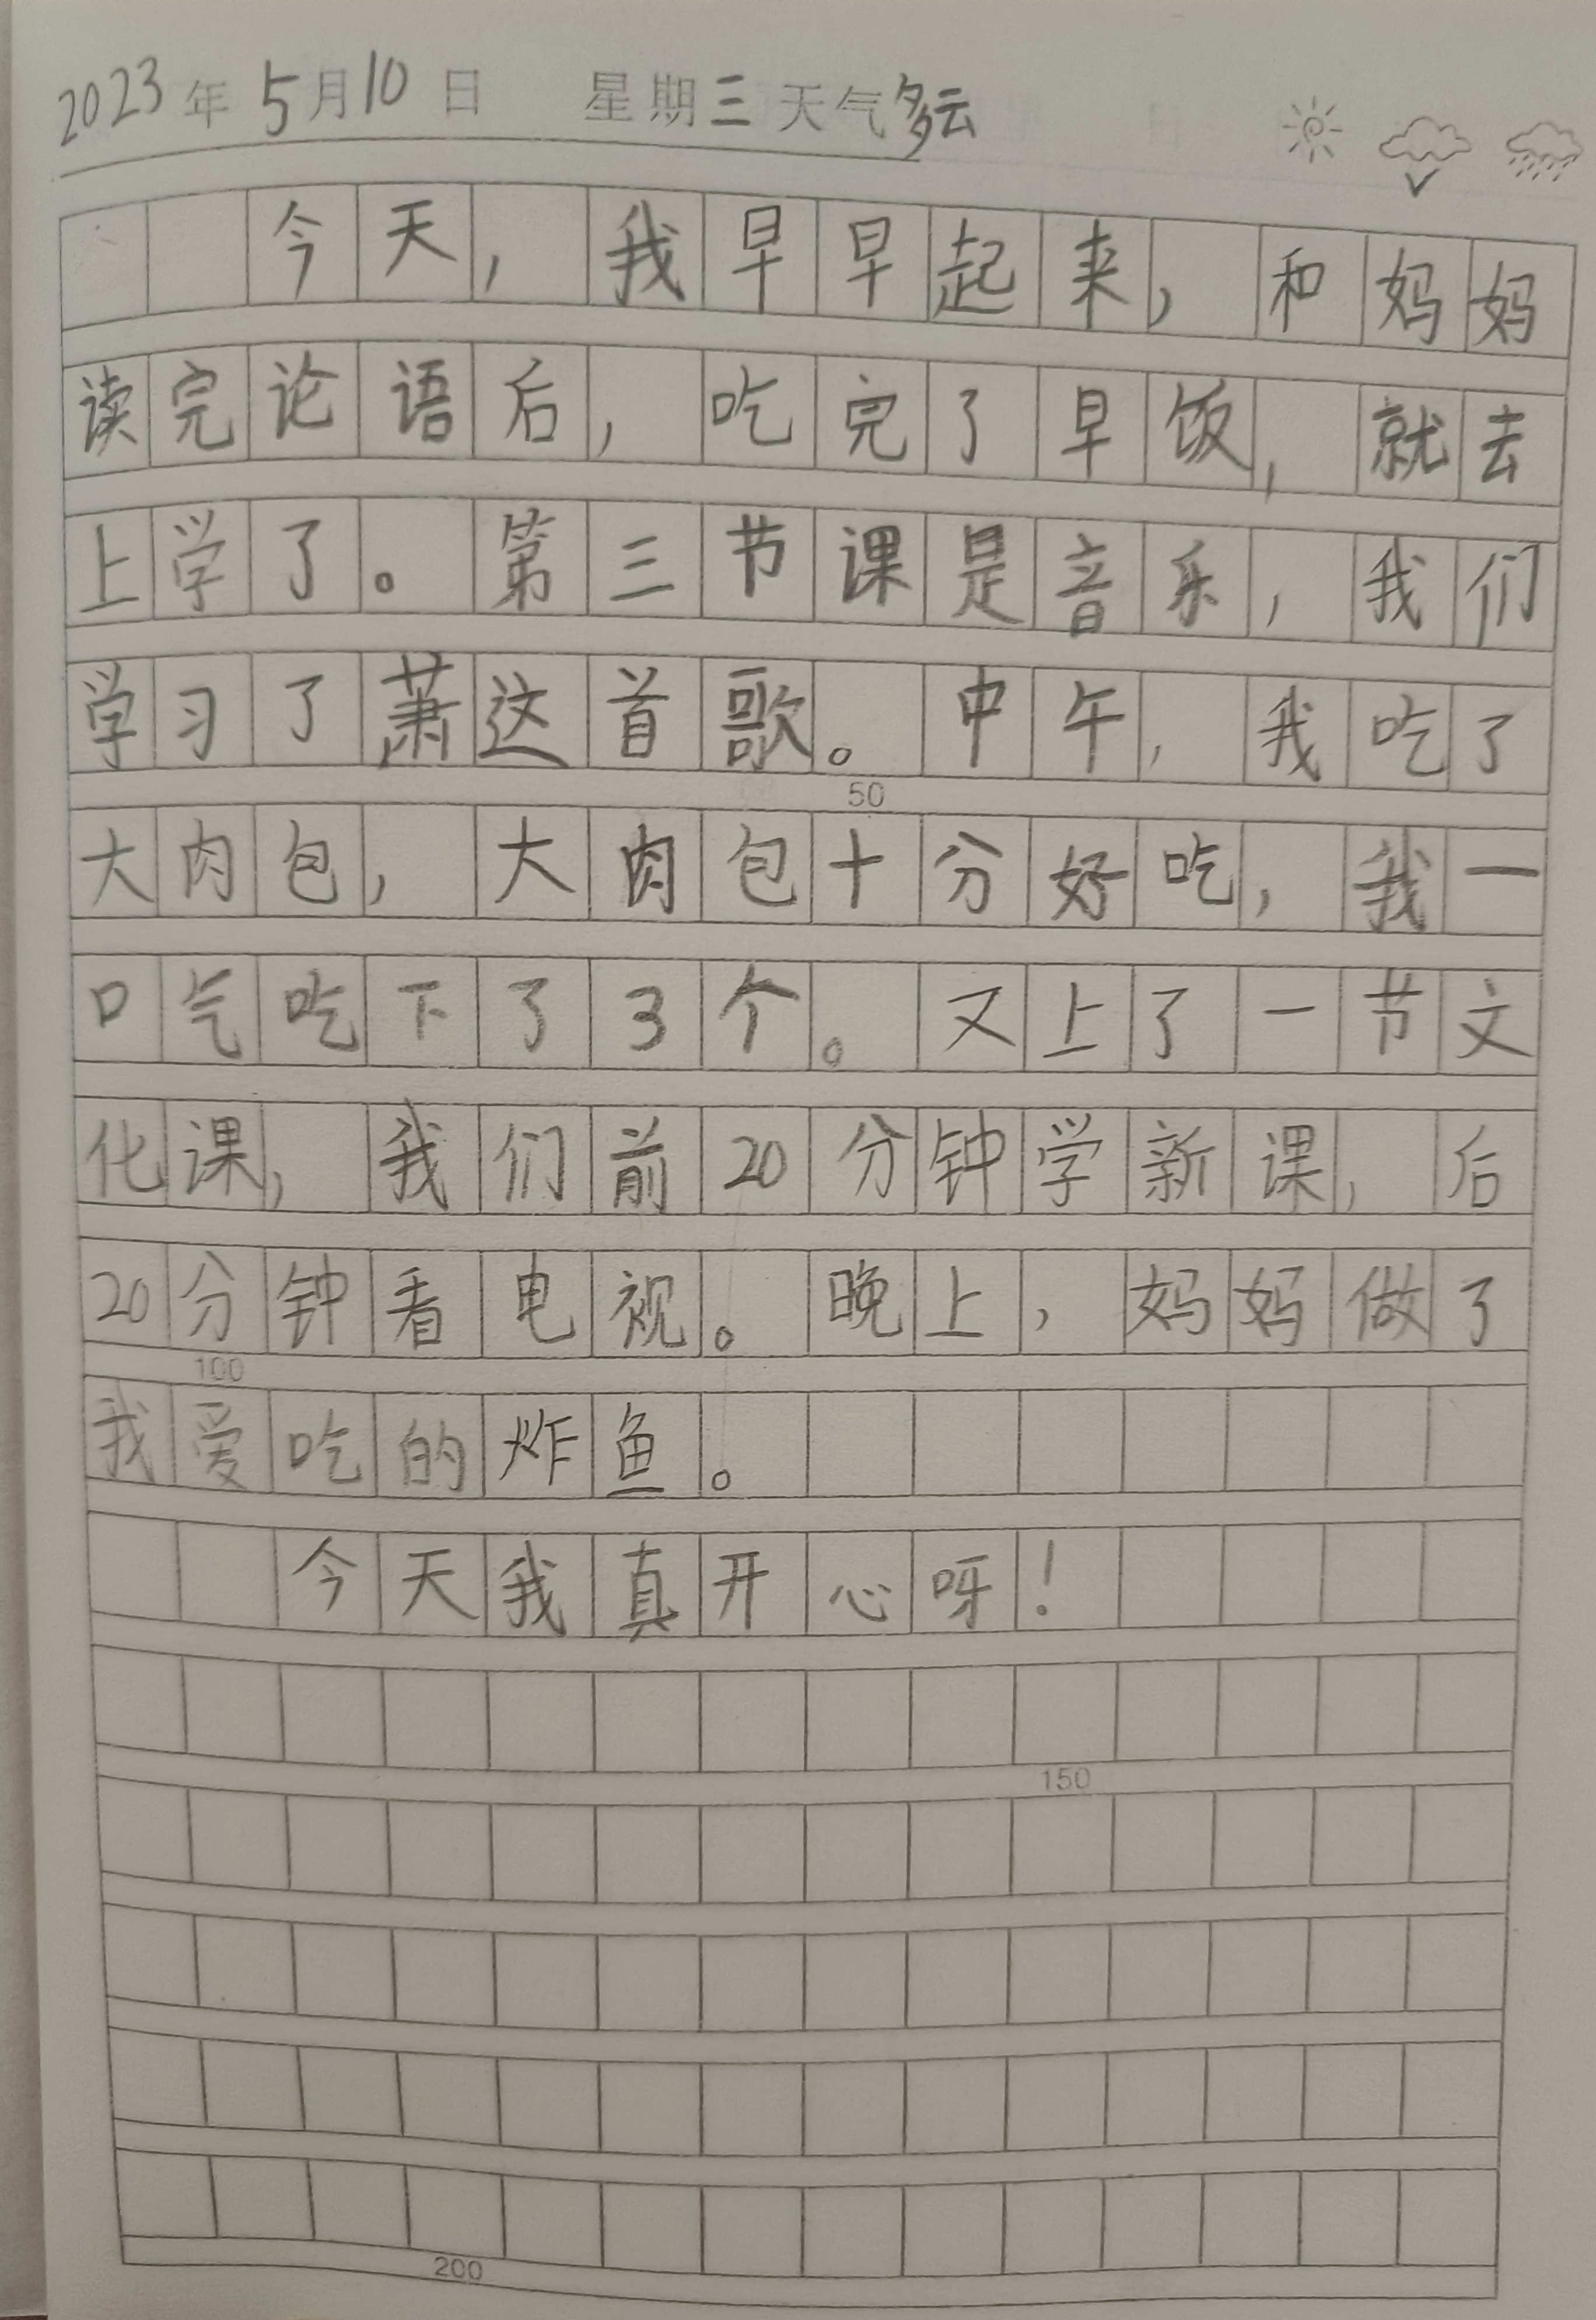 2023年5月10日 星期三天气多云
今天，我早早起来，和妈妈
读完论语后，吃完了早饭，就去
上学了。第三节课是音乐，我们
学习了萧这首歌。中午，我吃了
50
大肉包，大肉包十分好吃，我一
口气吃下了3个。又上了一节文
化课，我们前20分钟学新课，后
20分钟看电视。晚上，妈妈做了
100
我爱吃的炸鱼。
今天我真开心呀！
150
200